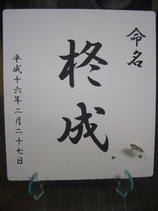 命名
柊成
平成十六年二月二十七日